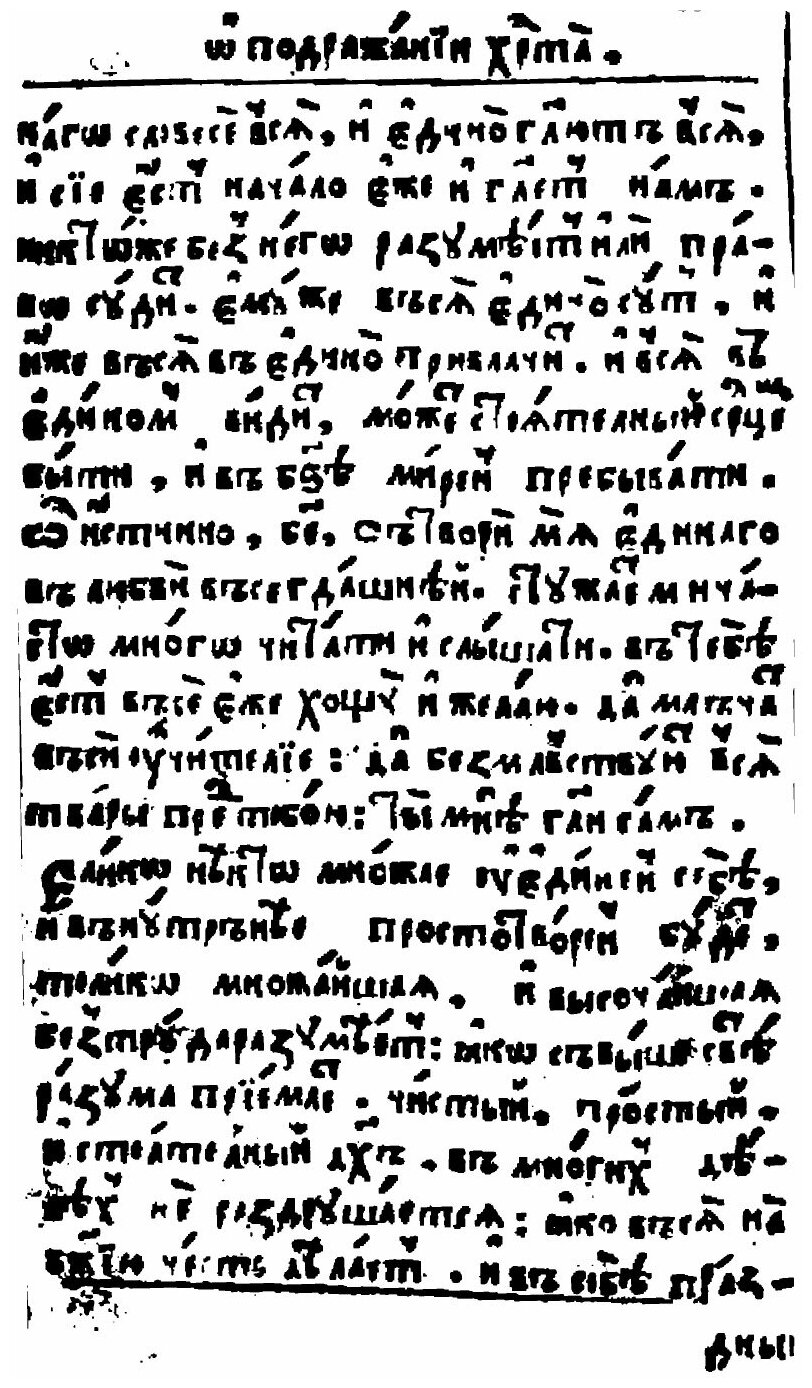 Ѡ подража́нїи хрⷭ҇та̀.
наго словесѐ всѧ̀, и҆ є҆ди́но гл҃ютъ всѧ̀,
и҆ сїе є҆́стъ нача́ло є҆́же и҆ гл҃етъ на́мъ.
никто́же без̾ негѡ̀ разꙋмѣ́етъ и҆лѝ пра́-
вѡ сꙋ́дитъ. є҆мꙋ́же въсѧ̀ є҆ди́но сꙋ́тъ, и҆
и҆́же въсѧ̀ въ є҆ди́но привлачи́тъ. и҆ всѧ̀ въ
є҆ди́номъ ви́дитъ, мо́жетъ стоѧ́телный се́рдце
бы́ти, и҆ въ бз҃ѣ ми́ренъ пребыва́ти.
Ѽ и҆́стинно, бж҃е, сътворѝ мѧ̀ є҆ди́наго
въ любвѝ въсегда́шнѣй. стꙋжа́етъ ми ча́-
стѡ мно́гѡ чита́ти и҆ слы́шати. въ тебѣ̀
є҆́стъ въсѐ є҆́же хощꙋ̀ и҆ жела́ю. да̀ млъча́тъ
въсѝ ᲂу҆чи́телїе: да̀ безмл҃ъствꙋютъ всѧ̀
тва́ры пред̾ тобо́ю: ты̀ мнѣ̀ гл҃и са́мъ.
Є҆ли́кѡ нѣ́кто мно́жае ᲂу҆є҆ди́ненъ себѣ̀,
и҆ вънꙋ́трънѣе простотворенъ бꙋ́детъ,
толи́кѡ множа́йшаѧ, и҆ высоча́йшаѧ
без̾ трꙋда̀ разꙋмѣ́етъ: ꙗ҆́кѡ съвы́ше свѣ́тъ
ра́зꙋма прїе́млетъ. чи́стый, про́стый,
и҆ стоѧ́телный дꙋ́хъ, въ мно́гихъ дѣ́-
лѣхъ не раздрꙋша́етсѧ: ꙗ҆́ко въсѧ̀ на̀
бж҃їю че́сть дѣ́лаетъ. и҆ въ себѣ̀ пра́з-
дны